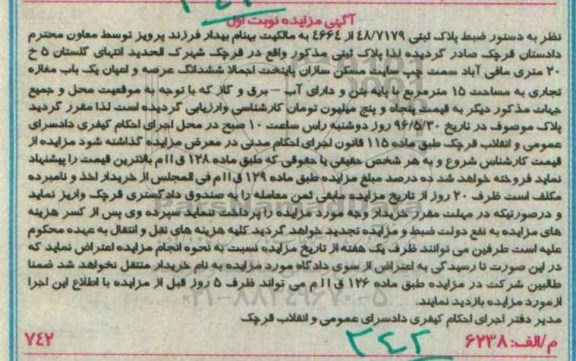 آگهی مزایده نوبت اول
نظر به دستور ضبط پلاک ثبتی ۴۸/۷۱۷۹ از ۴۶۶۴ به مالکیت بینام بیدار فرزند پرویز توسط معاون محترم
دادستان قرچک صادر گردیده لذا پلاک ثبتی مذکور واقع در قرچک شهرک الحدید انتهای گلستان ۵ خ
۲۰ متری مافی آباد سمت چپ سایت مسکن سازان پایتخت اجمالا ششدانگ عرصه و اعیان یک باب مغازه
تجاری به مساحت ۱۵ مترمربع با پایه بتن و دارای آب – برق و گاز که با توجه به موقعیت محل و جمیع
جهات مذکور دیگر به قیمت پنجاه و پنج میلیون تومان کارشناسی وارزیابی گردیده است لذا مقرر گردید
پلاک موصوف در تاریخ ۹۶/۵/۳۰ روز دوشنبه راس ساعت ۱۰ صبح در محل اجرای احکام کیفری دادسرای
عمومی و انقلاب قرچک طبق ماده ۱۱۵ قانون اجرای احکام مدنی در معرض مزایده گذاشته شود مزایده از
قیمت کارشناس شروع و به هر شخص حقیقی یا حقوقی که طبق ماده ۱۲۸ ق ا ا م بالاترین قیمت را پیشنهاد
نماید فروخته خواهد شد ده درصد مبلغ مزایده طبق ماده ۱۲۹ ق ا ا م فی المجلس از خریدار اخذ و نامبرده
مکلف است ظرف ۲۰ روز از تاریخ مزایده مابقی ثمن معامله را به صندوق دادگستری قرچک واریز نماید
و درصورتیکه در مهلت مقرر خریدار وجه مورد مزایده را پرداخت ننماید سپرده وی پس از کسر هزینه
های مزایده به نفع دولت ضبط و مزایده تجدید خواهد گردید کلیه هزینه های نقل و انتقال به عهده محکوم
علیه است طرفین می توانند ظرف یک هفته از تاریخ مزایده نسبت به نحوه انجام مزایده اعتراض نماید که
در این صورت تا رسیدگی به اعتراض از سوی دادگاه مورد مزایده به نام خریدار منتقل نخواهد شد ضمنا
طالبین شرکت در مزایده طبق ماده ۱۲۶ ق ا ا م می تواند ظرف ۵ روز قبل از مزایده با اطلاع این اجرا
ازمورد مزایده بازدید نمایند.
مدیر دفتر اجرای احکام کیفری دادسرای عمومی و انقلاب قرچک
م/الف: ۶۲۳۸ ۳۴۲ ۷۴۲